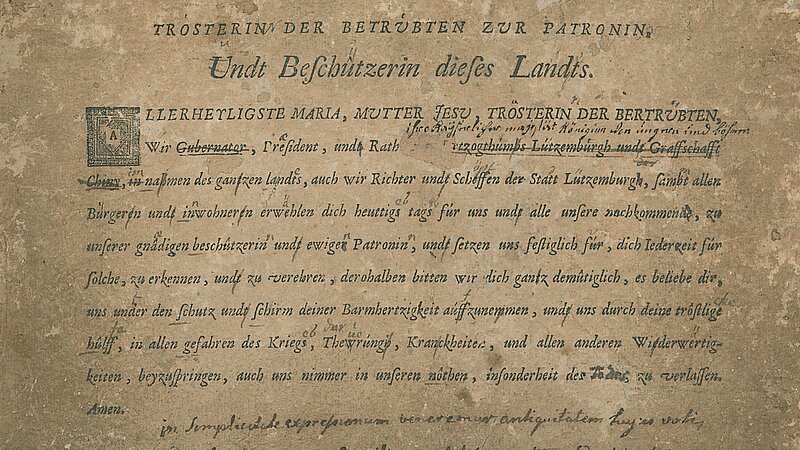 TRÖSTERIN DER BETRÜBTEN ZUR PATRONIN,
Undt Beſchützerin dieſes Landts.
ALLERHEYLIGSTE MARIA, MUTTER JESU, TRÖSTERIN DER BERTRÜBTEN,
ihro Kayserlicher majestat Königinn von ungern und bohem
Wir Gubernator, Præſident, undt Rath rtzogthumbs Lützemburgh undt Graffschafft
Chiny, in nahmen des gantzen landts, auch wir Richter undt Scheffen der Statt Lützemburgh, ſambt allen
Bürgeren undt inwohneren erwehlen dich heuttigs tags für uns undt alle unſere nachkommende, zu
unſerer gnädigen beſchützerin undt ewigen Patronin, undt ſetzen uns feſtiglich für, dich Iederzeit für
ſolche, zu erkennen, undt zu verehren, derohalben bitten wir dich gantz demütiglich, es beliebe dir,
uns under den ſchutz undt ſchirm deiner Barmhertzigkeit auffzunemmen, undt uns durch deine tröſtlige
hülff, in allen gefahren des Kriegs, Thewrungh, Kranckheiten, und allen anderen Wiederwërtig-
keiten, beyzuſpringen, auch uns nimmer in unſeren nöthen, inſonderheit des Todes zu verlaſſen.
Amen.
in Semplicitate expressionum veneremur antiquitatem hujus voti,